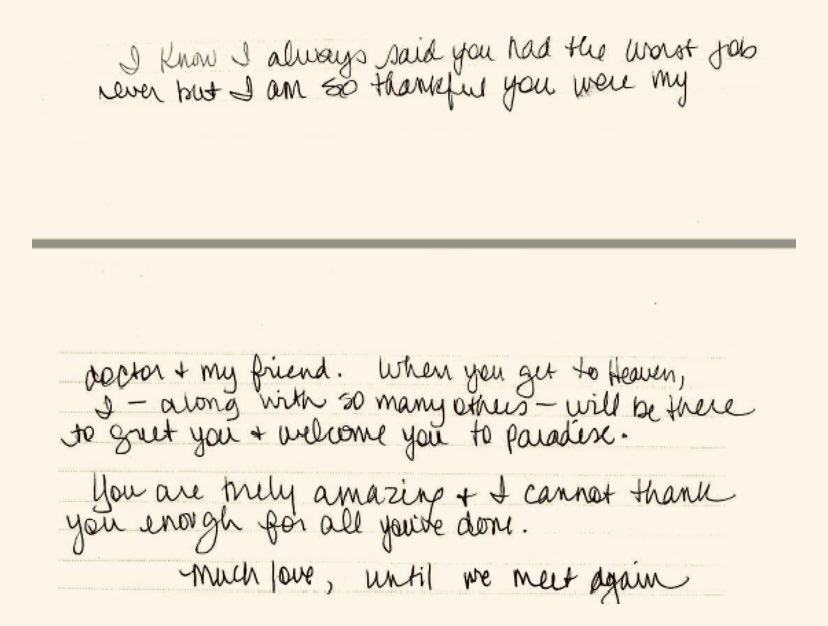 I know I always said you had the worst job
never but I am so thankful you were my
doctor + my friend. When you get to Heaven,
I - along with so many others - will be there
to greet you + welcome you to paradise.
You are truly amazing + I cannot thank
you enough for all you've done.
Much love, until we meet again